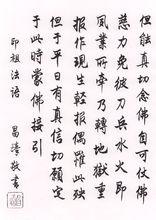 但能真切念自可仗佛
慈力免彼刀兵水火即
風業所牵乃轉地獄重
报作現生輕报偶罹此殃
但于平日有真信切願定
于此時蒙佛接引
印祖法语
昌 敬书